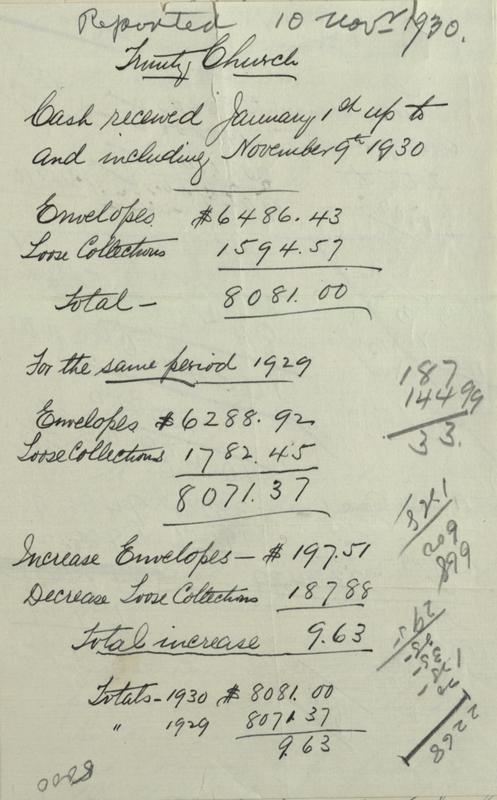 Reported 10 Novr 1930.
Trinity Church
Cash received January 1th up to
and including November 9th 1930
Envelopes $6486.43
Loose Collections 1594.57
Total - 8081.00
For the same period 1929
Envelopes $6288.92
Loose Collections 1782.45
8071.37
Increase Envelopes - $197.51
Decrease Loose Collections 187 88
Total increase 9.63
Totals - 1930 $8081.00
" 1929 8071.37
9.63
187
144 99
33.
2268
8800